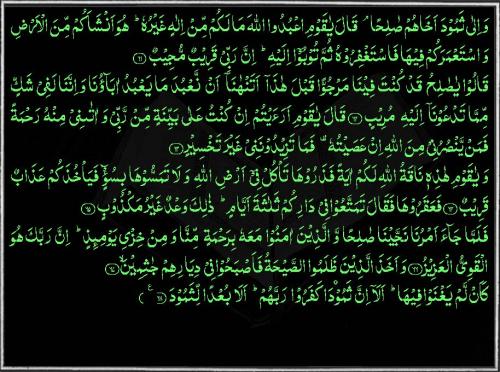 وَاِلٰى ثَمُوْدَ اَخَاهُمْ صٰلِحًا ۘ قَالَ يٰقَوْمِ اعْبُدُوا اللهَ مَا لَكُمْ مِّنْ اِلٰهٍ غَيْرُهٗ ؕ هُوَ اَنْشَاَكُمْ مِّنَ الْاَرْضِ
وَاسْتَعْمَرَكُمْ فِيْهَا فَاسْتَغْفِرُوْهُ ثُمَّ تُوْبُوْۤا اِلَيْهِ ؕ اِنَّ رَبِّيْ قَرِيْبٌ مُّجِيْبٌ ﴿۶۱﴾
قَالُوْا يٰصٰلِحُ قَدْ كُنْتَ فِيْنَا مَرْجُوًّا قَبْلَ هٰذَاۤ اَتَنْهٰىنَاۤ اَنْ نَّعْبُدَ مَا يَعْبُدُ اٰبَآؤُنَا وَاِنَّنَا لَفِيْ شَكٍّ
مِّمَّا تَدْعُوْنَاۤ اِلَيْهِ مُرِيْبٍ ﴿۶۲﴾ قَالَ يٰقَوْمِ اَرَءَيْتُمْ اِنْ كُنْتُ عَلٰى بَيِّنَةٍ مِّنْ رَّبِّيْ وَاٰتٰىنِيْ مِنْهُ رَحْمَةً
فَمَنْ يَّنْصُرُنِيْ مِنَ اللهِ اِنْ عَصَيْتُهٗ ۟ فَمَا تَزِيْدُوْنَنِيْ غَيْرَ تَخْسِيْرٍ ﴿۶۳﴾
وَيٰقَوْمِ هٰذِهٖ نَاقَةُ اللهِ لَكُمْ اٰيَةً فَذَرُوْهَا تَاْكُلْ فِيْۤ اَرْضِ اللهِ وَلَا تَمَسُّوْهَا بِسُوْٓءٍ فَيَاْخُذَكُمْ عَذَابٌ
قَرِيْبٌ ﴿۶۴﴾ فَعَقَرُوْهَا فَقَالَ تَمَتَّعُوْا فِيْ دَارِكُمْ ثَلٰثَةَ اَيَّامٍ ؕ ذٰلِكَ وَعْدٌ غَيْرُ مَكْذُوْبٍ ﴿۶۵﴾
فَلَمَّا جَآءَ اَمْرُنَا نَجَّيْنَا صٰلِحًا وَّالَّذِيْنَ اٰمَنُوْا مَعَهٗ بِرَحْمَةٍ مِّنَّا وَمِنْ خِزْيِ يَوْمِئِذٍ ؕ اِنَّ رَبَّكَ هُوَ
الْقَوِيُّ الْعَزِيْزُ ﴿۶۶﴾ وَاَخَذَ الَّذِيْنَ ظَلَمُوا الصَّيْحَةُ فَاَصْبَحُوْا فِيْ دِيَارِهِمْ جٰثِمِيْنَ ﴿۶۷﴾
كَاَنْ لَّمْ يَغْنَوْا فِيْهَا ؕ اَلَاۤ اِنَّ ثَمُوْدَا۟ كَفَرُوْا رَبَّهُمْ ؕ اَلَا بُعْدًا لِّثَمُوْدَ ﴿۶۸﴾ ع